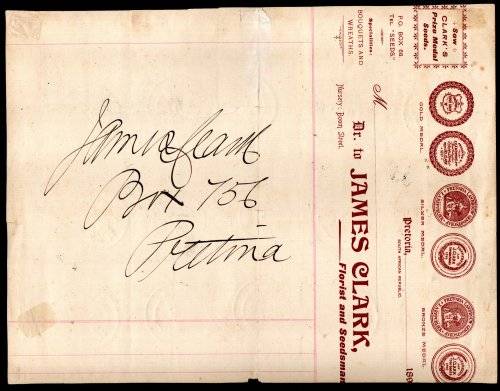 James Clark
Box 756
Pretoria
Sow
CLARK'S
Prize Medal
Seeds.
P.O. BOX 68
Tel. "SEEDS"
Specialities:
BOUQUETS AND
WREATHS.
M
Dr. to JAMES CLARK,
Florist and Seedsman
Nursery: Boom Street.
Pretoria,
SOUTH AFRICAN REPUBLIC.
189
GOLD MEDAL
SILVER MEDAL
BRONZE MEDAL